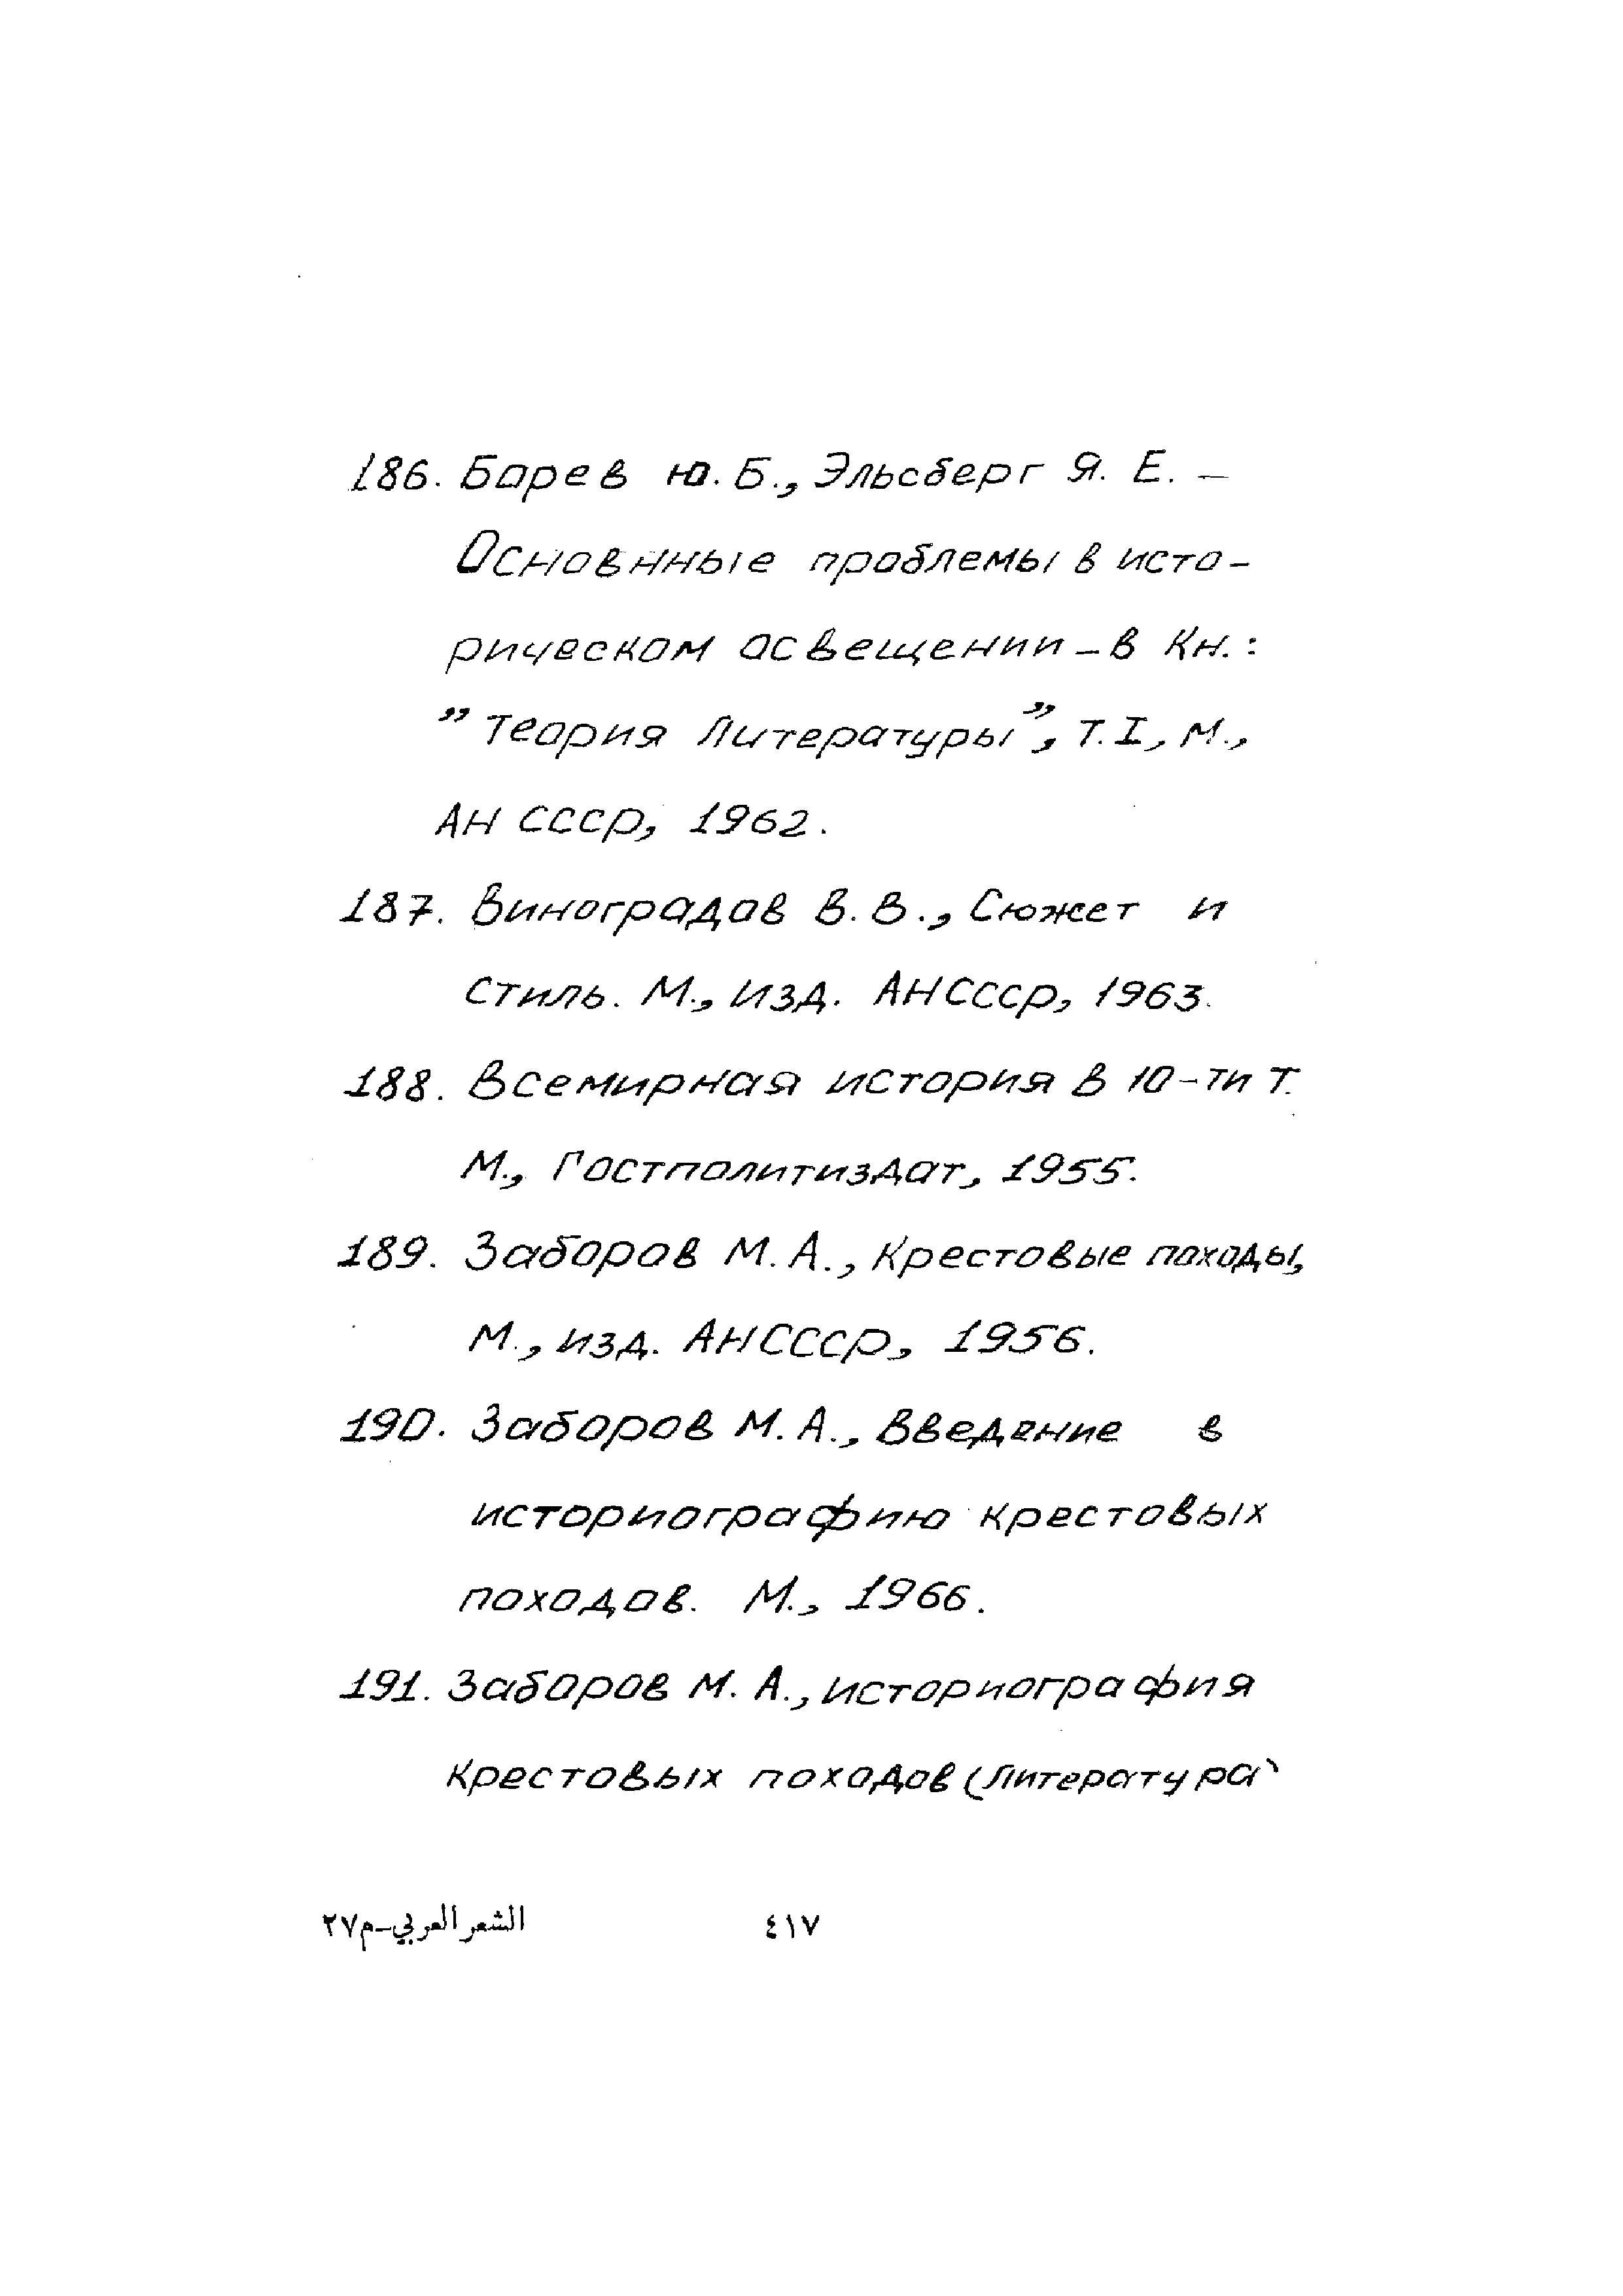 186. Борев Ю. Б., Эльсберг Я. Е. –
Основнные проблемы в исто–
рическом освещении – в кн.:
"Теория Литературы", Т. I, М.,
АН СССР, 1962.
187. Виноградов В. В., Сюжет и
стиль. М., изд. АНСССР, 1963.
188. Всемирная история в 10-ти Т.
М., Гостполитиздат, 1955.
189. Заборов М. А., Крестовые походы,
М., изд. АНСССР, 1956.
190. Заборов М. А., Введение в
историографию крестовых
походов. М., 1966.
191. Заборов М. А., историография
крестовых походов (Литература
٤١٧
الشعر العربي-م٢٧